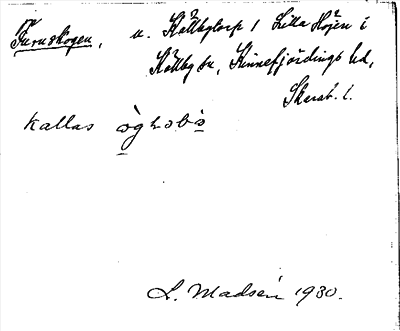 Furuskogen, u. Källbytorp 1 Lilla Höjen i
Källby sn, Kinnefjärdings hd,
Skarab. l.
kallas
L. Madsén 1930.